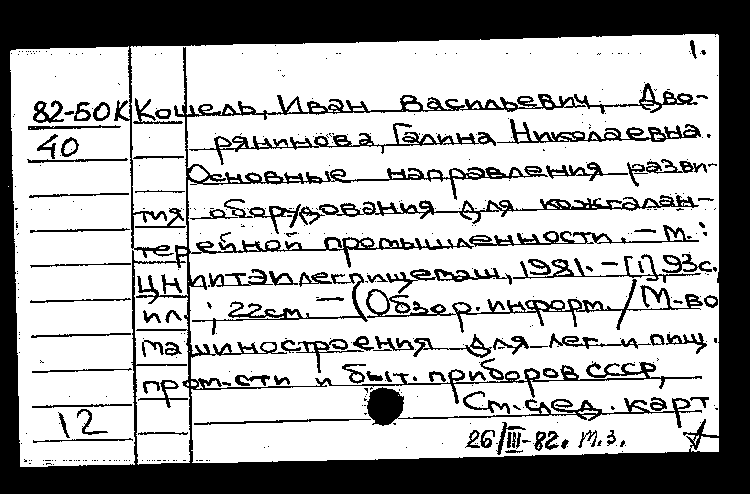 1.
82-50К Кошель, Иван Васильевич, Дво-
40 рянинова, Галина Николаевна.
Основные направления разви-
тия оборудования для кожгалан-
терейной промышленности. – М.:
ЦНИИТЭИлегпищемаш, 1981. – [1], 93 с.
ил.; 22 см. – (Обзор. информ. / М-во
машиностроения для лег. и пищ.
пром-сти и быт. приборов СССР,
12 См. след. карт.
26/III-82. т.з.